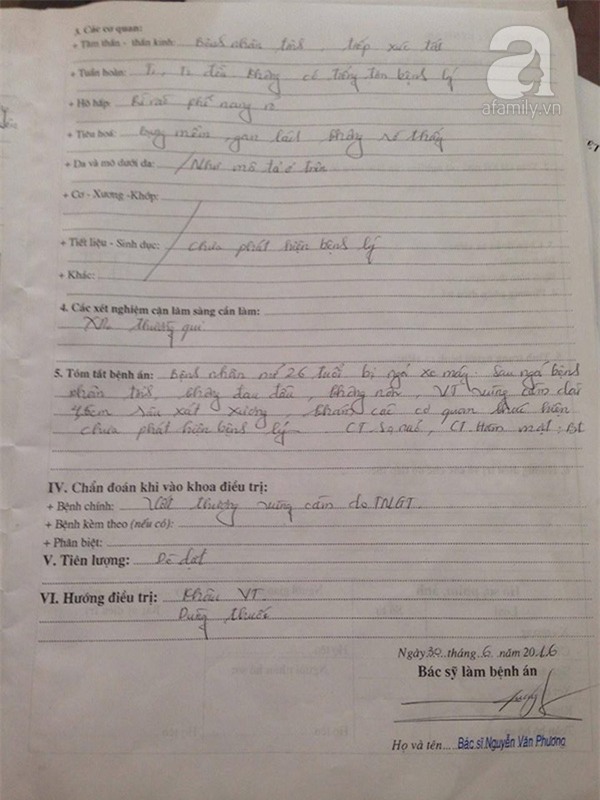 3. Các cơ quan:
+ Tâm thần - thần kinh: Bệnh nhân tỉnh, tiếp xúc tốt
+ Tuần hoàn: T1, T2 đều không có tiếng tim bệnh lý
afamily.vn
+ Hô hấp: Rì rào phế nang rõ
+ Tiêu hoá: Bụng mềm, gan lách không sờ thấy
+ Da và mô dưới da: Như mô tả ở trên
+ Cơ - Xương - Khớp:
+ Tiết liệu - Sinh dục: chưa phát hiện bệnh lý
+ Khác:
4. Các xét nghiệm cận lâm sàng cần làm:
XN thường qui
5. Tóm tắt bệnh án: Bệnh nhân nữ 26 tuổi bị ngã xe máy. Sau ngã bệnh
nhân tỉnh, không đau đầu, không nôn, VT vùng cằm dài
sâu xát xương khám các cơ quan khác hiện
chưa phát hiện bệnh lý CT. Sọ não, CT. Hàm mặt: BT
IV. Chẩn đoán khi vào khoa điều trị:
+ Bệnh chính: Vết thương vùng cằm do TNGT.
+ Bệnh kèm theo (nếu có):
+ Phân biệt:
V. Tiên lượng: Dè dặt
VI. Hướng điều trị: Khâu VT.
Dùng thuốc
Ngày 30 tháng 6 năm 2016
Bác sỹ làm bệnh án
Họ và tên Bác sĩ Nguyễn Văn Phương